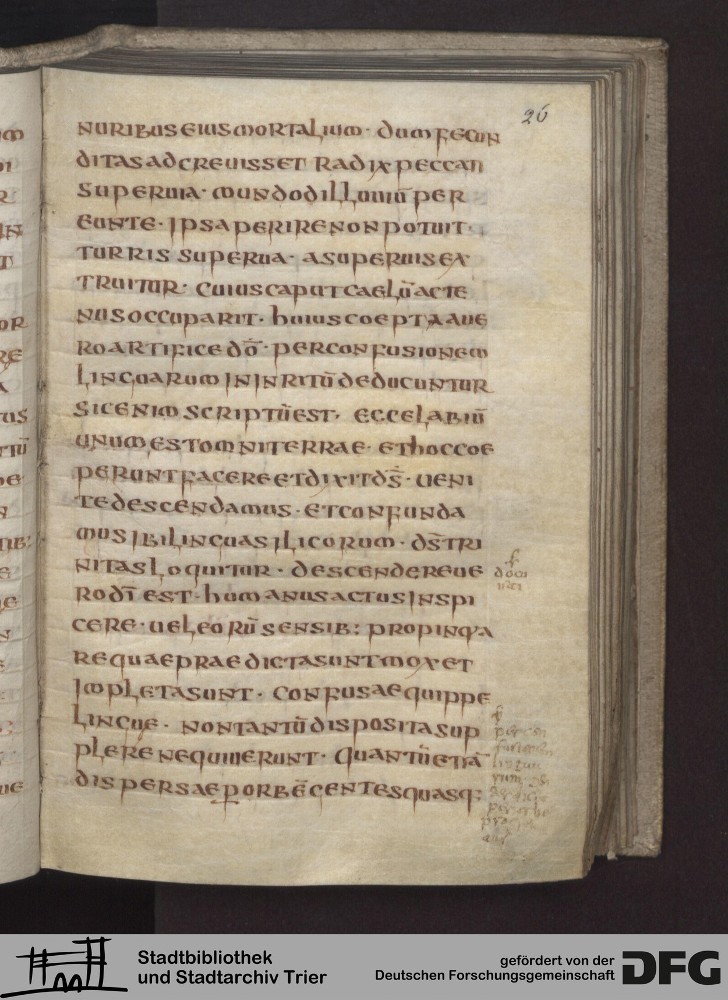 26
NURIBUS EIUS MORTALIUM · DUM FECUN
DITAS ADCREUISSET RADIX PECCATI
SUPERUIA · MUNDO DILLUUIŪ PER
EUNTE · IPSA PERIRE NON POTUIT ·
TURRIS SUPERUA · A SUPERUIS EX
TRUITUR · CUIUS CAPUT CAELŪ ACTE
NUS OCCUPARIT · HUIUS COEPTA A UE
RO ARTIFICE DŌ · PER CONFUSIONEM
LINGUARUM IN INRITŪ DEDUCUNTUR
SIC ENIM SCRIPTŪ EST · ECCE LABIŪ
UNUM EST OMNI TERRAE · ET HOC COE
PERUNT FACERE ET DIXIT DS̄ · UENI
TE DESCENDAMUS · ET CONFUNDA
MUS IBI LINGUAS ILLICORUM · DS̄ TRI
NITAS LOQUITUR · DESCENDERE UE
RO DĪ EST · HUMANUS ACTUS INSPI
CERE · UEL EORŪ SENSIB: PROPINQUA
RE QUAE PRAEDICTA SUNT MOX ET
IMPLETA SUNT · CONFUSAE QUIPPE
LINGUE · NON TANTŪ DISPOSITA SUP
PLERE NEQUIUERUNT · QUANTŪ ETIĀ
DISPERSAE P̱ ORBĒ GENTES QUASQ:
Stadtbibliothek
und Stadtarchiv Trier
gefördert von der
Deutschen Forschungsgemeinschaft
DFG